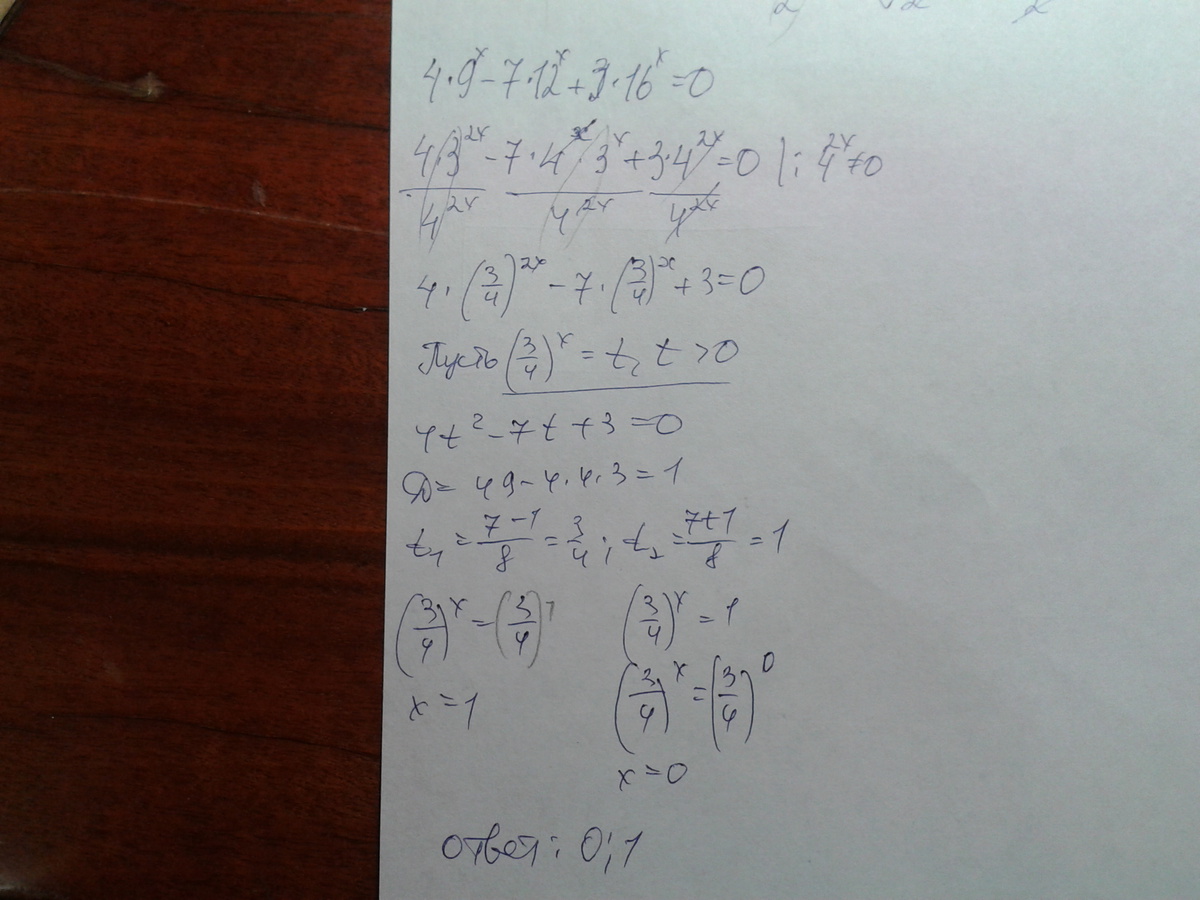 2 √2 2
4·9ˣ-7·12ˣ+3·16ˣ=0
4·3²ˣ/4²ˣ - 7·4ˣ·3ˣ/4²ˣ + 3·4²ˣ/4²ˣ =0 |: 4²ˣ≠0
4·(3/4)²ˣ - 7·(3/4)ˣ + 3=0
Пусть (3/4)ˣ = t, t >0
4t² - 7t + 3 =0
D= 49-4·4·3=1
t₁ = (7-1)/8 = 3/4; t₂ = (7+1)/8 = 1
(3/4)ˣ = (3/4)¹ (3/4)ˣ = 1
(3/4)ˣ = (3/4)⁰
x = 1
x=0
ответ: 0;1